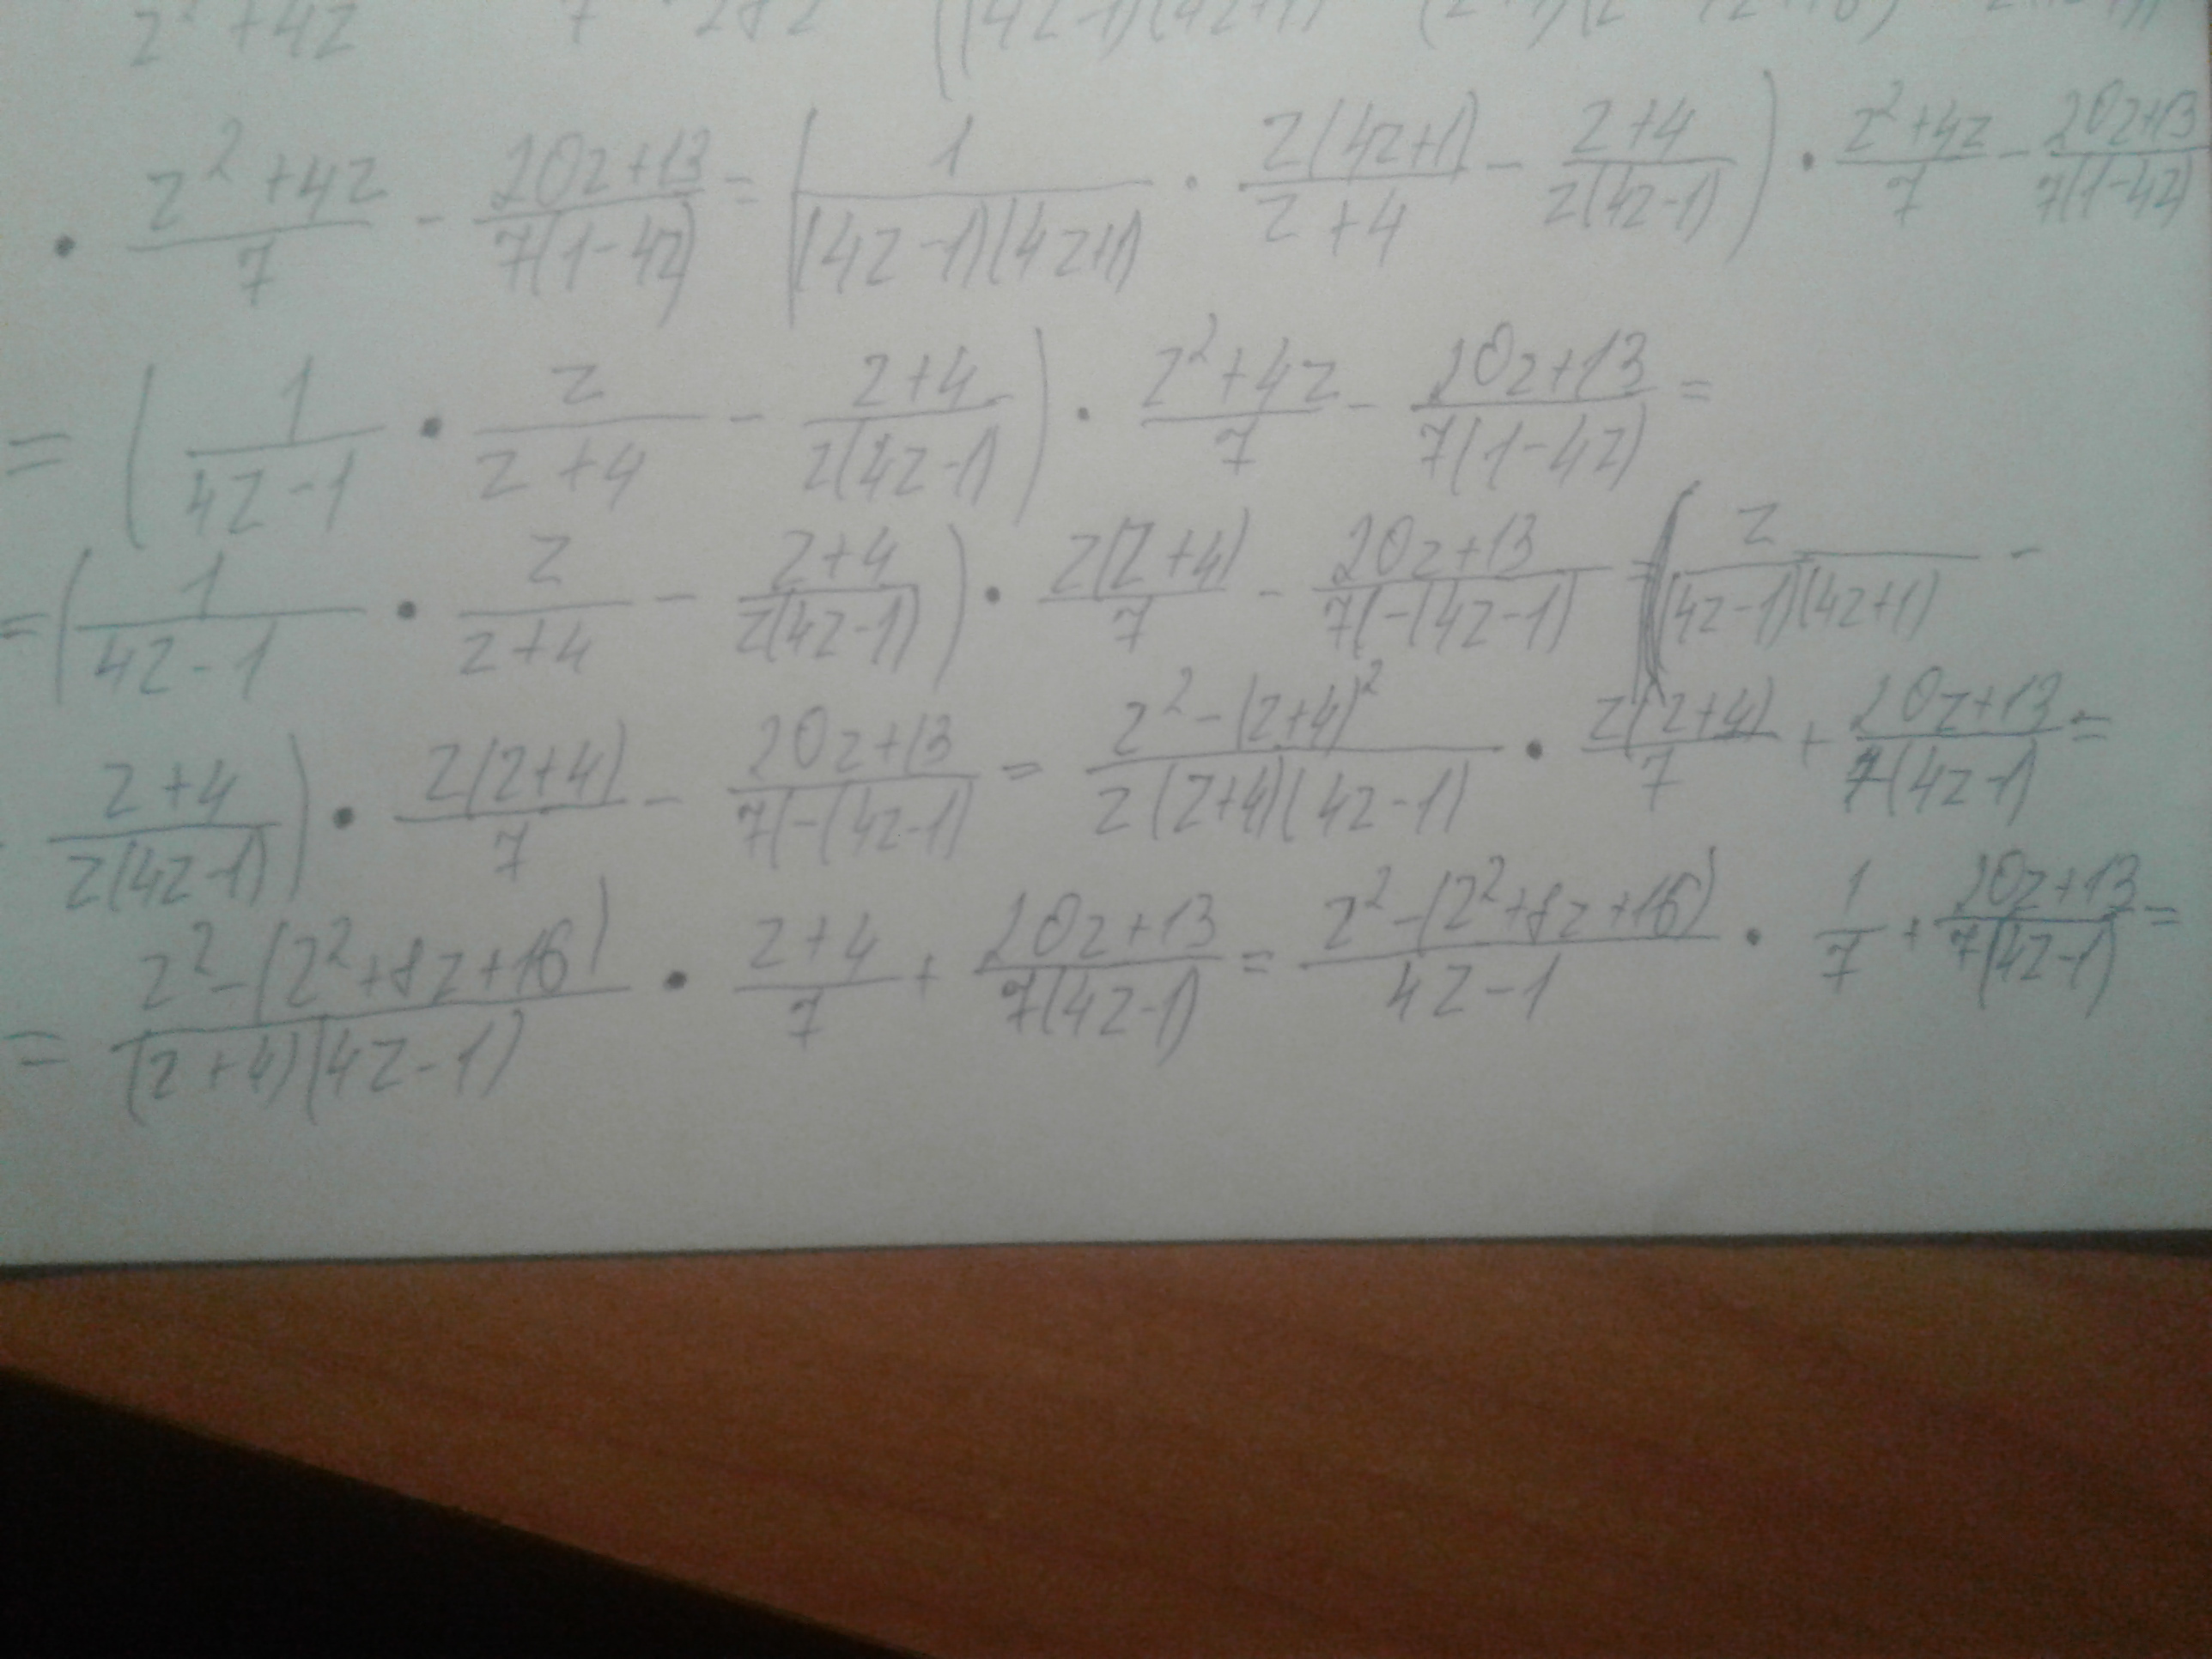 z² + 4z
· (z² + 4z)/7 - (20z+13)/(7(1-4z)) = (1/((4z-1)(4z+1)) · (z(4z+1))/(z+4) - (z+4)/(z(4z-1))) · (z²+4z)/7 - (20z+13)/(7(1-4z))
= (1/(4z-1) · z/(z+4) - (z+4)/(z(4z-1))) · (z²+4z)/7 - (20z+13)/(7(1-4z)) =
= (1/(4z-1) · z/(z+4) - (z+4)/(z(4z-1))) · (z(z+4))/7 - (20z+13)/(7(-(4z-1)) = (z/((4z-1)(4z+1)) -
- (z+4)/(z(4z-1))) · (z(z+4))/7 - (20z+13)/(7(-(4z-1)) = (z²-(z+4)²)/(z(z+4)(4z-1)) · (z(z+4))/7 + (20z+13)/(7(4z-1)) =
= (z²-(z²+8z+16))/((z+4)(4z-1)) · (z+4)/7 + (20z+13)/(7(4z-1)) = (z²-(z²+8z+16))/(4z-1) · 1/7 + (20z+13)/(7(4z-1)) =